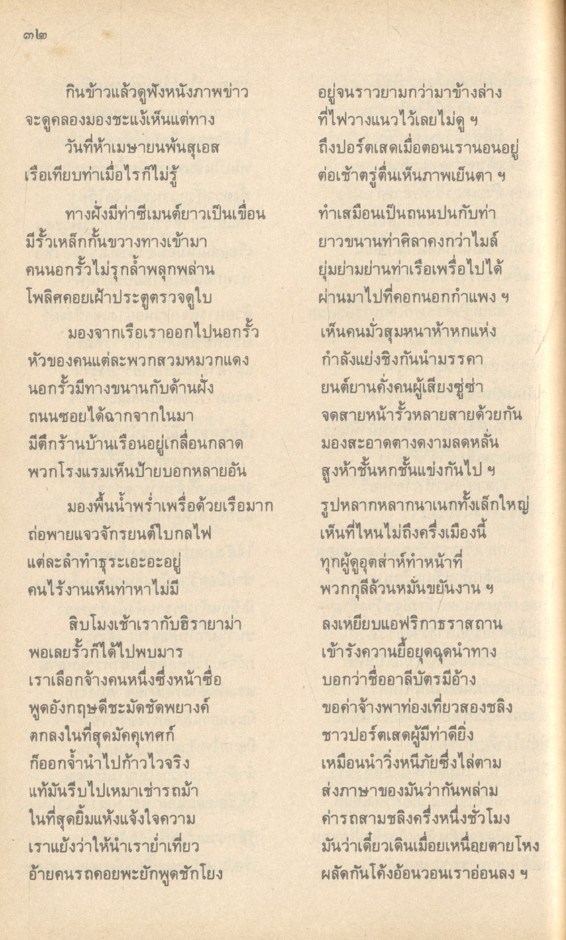 ๓๒
กินข้าวแล้วดูฟังหนังภาพข่าว อยู่จนราวยามกว่ามาข้างล่าง
จะดูคลองมองชะแง้เห็นแต่ทาง ที่ไฟวางแนวไว้เลยไม่ดู ฯ
วันที่ห้าเมษายนพ้นสุเอส ถึงปอร์ตเสดเมื่อตอนเรานอนอยู่
เรือเทียบท่าเมื่อไรก็ไม่รู้ ต่อเช้าตรู่ตื่นเห็นภาพเย็นตา ฯ
ทางฝั่งมีท่าซีเมนต์ยาวเป็นเขื่อน ทำเสมือนเป็นถนนปนกับท่า
มีรั้วเหล็กกั้นขวางทางเข้ามา ยาวขนานท่าศิลาคงกว่าไมล์
คนนอกรั้วไม่รุกล้ำพลุกพล่าน ยุ่มย่ามย่านท่าเรือเพรื่อไปได้
โพลิศคอยเฝ้าประตูตรวจดูใบ ผ่านมาไปที่คอกนอกกำแพง ฯ
มองจากเรือเราออกไปนอกรั้ว เห็นคนมั่วสุมหนาห้าหกแห่ง
หัวของคนแต่ละพวกสวมหมวกแดง กำลังแย่งชิงกันนำมรรคา
นอกรั้วมีทางขนานกับด้านฝั่ง ยนต์ยานคั่งคนผู้เสียงซู่ซ่า
ถนนซอยได้ฉากจากในมา จดสายหน้ารั้วหลายสายด้วยกัน
มีตึกร้านบ้านเรือนอยู่เกลื่อนกลาด มองสะอาดตางดงามลดหลั่น
พวกโรงแรมเห็นป้ายบอกหลายอัน สูงห้าชั้นหกชั้นแข่งกันไป ฯ
มองพื้นน้ำพร่ำเพรื่อด้วยเรือมาก รูปหลากหลากนาเนกทั้งเล็กใหญ่
ถ่อพายแจวจักรยนต์ใบกลไฟ เห็นที่ไหนไม่ถึงครึ่งเมืองนี้
แต่ละลำทำธุระเอะอะอยู่ ทุกผู้ดูอุตส่าห์ทำหน้าที่
คนไร้งานเห็นท่าหาไม่มี พวกกุลีล้วนหมั่นขยันงาน ฯ
สิบโมงเช้าเรากับฮิรายาม่า ลงเหยียบแอฟริกาธราสถาน
พอเลยรั้วก็ได้ไปพบมาร เข้ารังควานยื้อยุดฉุดนำทาง
เราเลือกจ้างคนหนึ่งซึ่งหน้าซื่อ บอกว่าชื่ออาลีบัตรมีอ้าง
พูดอังกฤษดีชะมัดชัดพยางค์ ขอค่าจ้างพาท่องเที่ยวสองชลิง
ตกลงในที่สุดมัคคุเทศก์ ชาวปอร์ตเสดผู้มีท่าดียิ่ง
ก็ออกจ้ำนำไปก้าวไวจริง เหมือนนำวิ่งหนีภัยซึ่งไล่ตาม
แท้มันรีบไปเหมาเช่ารถม้า ส่งภาษาของมันว่ากันพล่าม
ในที่สุดยิ้มแห้งแจ้งใจความ ค่ารถสามชลิงครึ่งหนึ่งชั่วโมง
เราแย้งว่าให้นำเราย่ำเที่ยว มันว่าเดี๋ยวเดินเมื่อยเหนื่อยตายโหง
อ้ายคนรถคอยพะยักพูดชักโยง ผลัดกันโค้งอ้อนวอนเราอ่อนลง ฯ